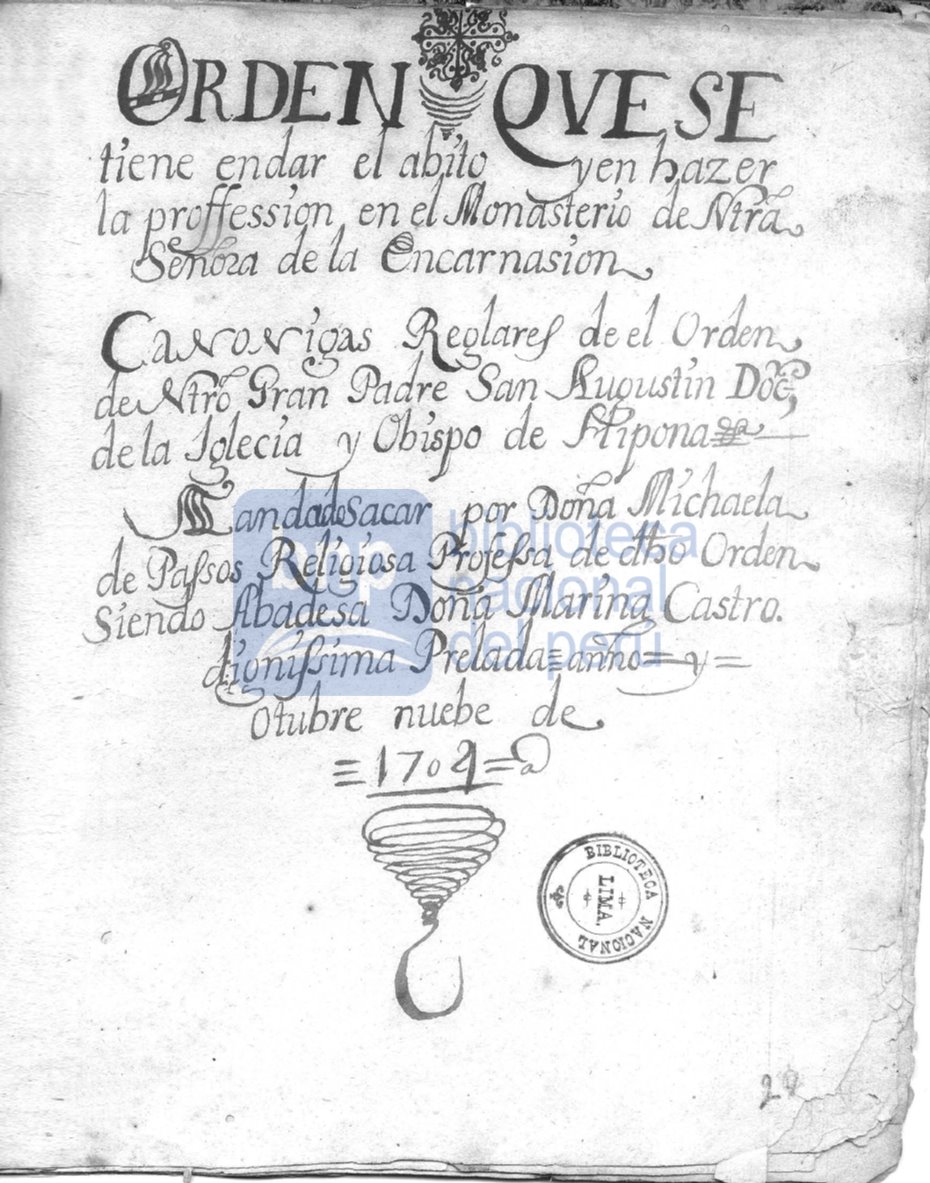 ORDEN QVE SE
tiene endar el abito yen hazer
la proffession en el Monasterio de Ntrã
Señora de la Encarnasion
CANONigas Reglares de el Orden
de Ntrõ Gran Padre San Augustin Doc̃,
de la Iglecia y Obispo de Hipona
Mandadesacar por Doña Michaela
de Passos Religiosa Professa de dho Orden
Siendo Abadesa Doña Marina Castro.
dignissima Prelada = anño =
Otubre nuebe de
= 1704 =
bnp biblioteca
nacional
del perú
BIBLIOTECA NACIONAL
LIMA.